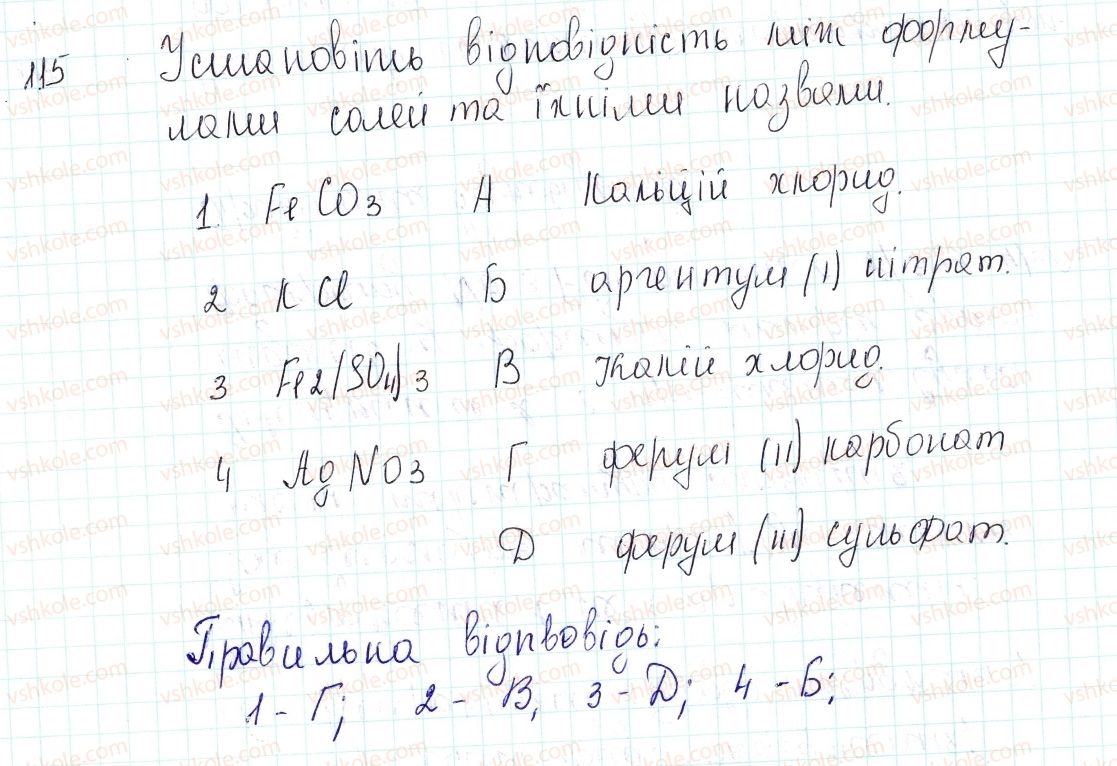 115 Установіть відповідність між форму-
лами солей та їхніми назвами.
1. FeCO3 А Кальцій хлорид.
2 KCl Б аргентум (I) нітрат.
3 Fe2(SO4)3 В Калій хлорид.
4 AgNO3 Г ферум (II) карбонат
Д ферум (III) сульфат.
Правильна відпвовідь:
1 - Г; 2 - В, 3 - Д; 4 - Б;